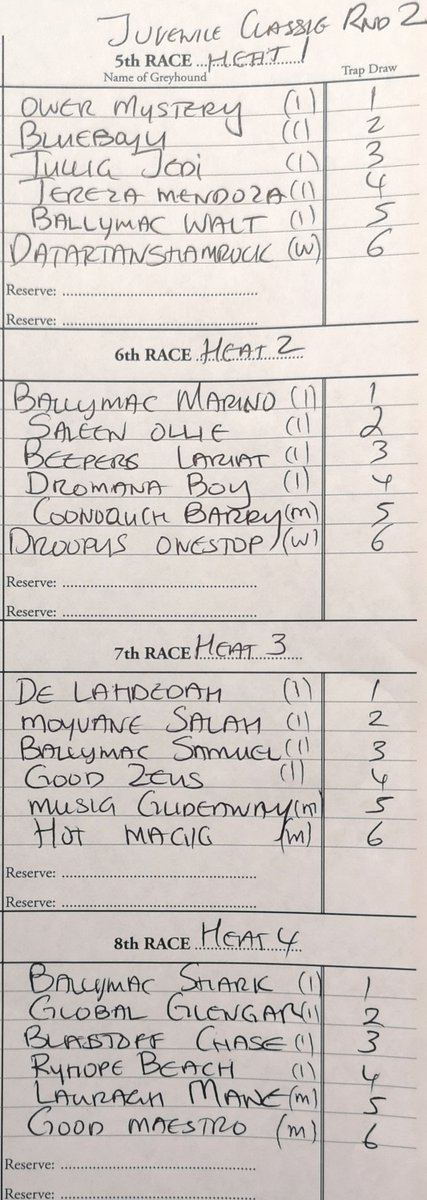 JUVENILE CLASSIC RND 2
5th RACE HEAT 1
Name of Greyhound Trap Draw
OWER MYSTERY (I) 1
BLUEBOY (I) 2
TULLIG JEDI (I) 3
TEREZA MENDOZA (I) 4
BALLYMAC WALT (I) 5
DATARTANSHAMROCK (W) 6
Reserve:
Reserve:
6th RACE HEAT 2
BALLYMAC MARINO (I) 1
SALEEN OLLIE (I) 2
BEEPERS LARIAT (I) 3
DROMANA BOY (I) 4
BARRY (m) 5
DROOPYS ONESTOP (W) 6
Reserve:
Reserve:
7th RACE HEAT 3
DE LAHDEDAH (I) 1
MOYVANE SALAH (I) 2
BALLYMAC SAMUEL (I) 3
GOOD ZEUS (I) 4
MUSIG GLIDEAWAY (m) 5
HOT MAGIC (m) 6
Reserve:
Reserve:
8th RACE HEAT 4
BALLYMAC SHARK (I) 1
GLOBAL GLENGAR (I) 2
BLASTOFF CHASE (I) 3
RYHOPE BEACH (I) 4
LAURAGH MANE (m) 5
GOOD MAESTRO (m) 6
Reserve:
Reserve: